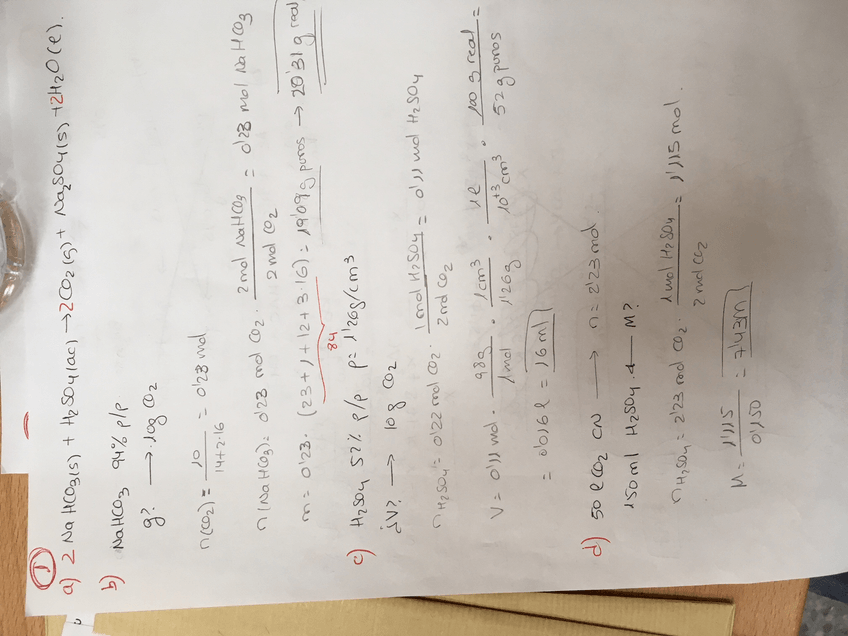 ①
a) 2 NaHCO3(s) + H2SO4(ac) → 2CO2(g) + Na2SO4(s) + 2H2O(l).
b) NaHCO3 94% p/p
g? → 10g CO2
n(CO2) = 10 / 14+2·16 = 0'23 mol
n(NaHCO3) = 0'23 mol CO2 · 2 mol NaHCO3 / 2 mol CO2 = 0'23 mol NaHCO3
m = 0'23 · (23+1+12+3·16) = 19'09 g puros → 20'31 g real
84
c) H2SO4 52% p/p ρ = 1'26g/cm3
¿V? → 10g CO2
nH2SO4 = 0'22 mol CO2 · 1 mol H2SO4 / 2 mol CO2 = 0'11 mol H2SO4
V = 0'11 mol · 98g / 1 mol · 1cm3 / 1'26g · 1l / 10+3 cm3 · 100 g real / 52 g puros =
= 0'016 l = 16 ml
d) 50 l CO2 CN → n = 2'23 mol.
150 ml H2SO4 ← M?
nH2SO4 = 2'23 mol CO2 · 1 mol H2SO4 / 2 mol CO2 = 1'115 mol.
M = 1'115 / 0'150 = 7'43M